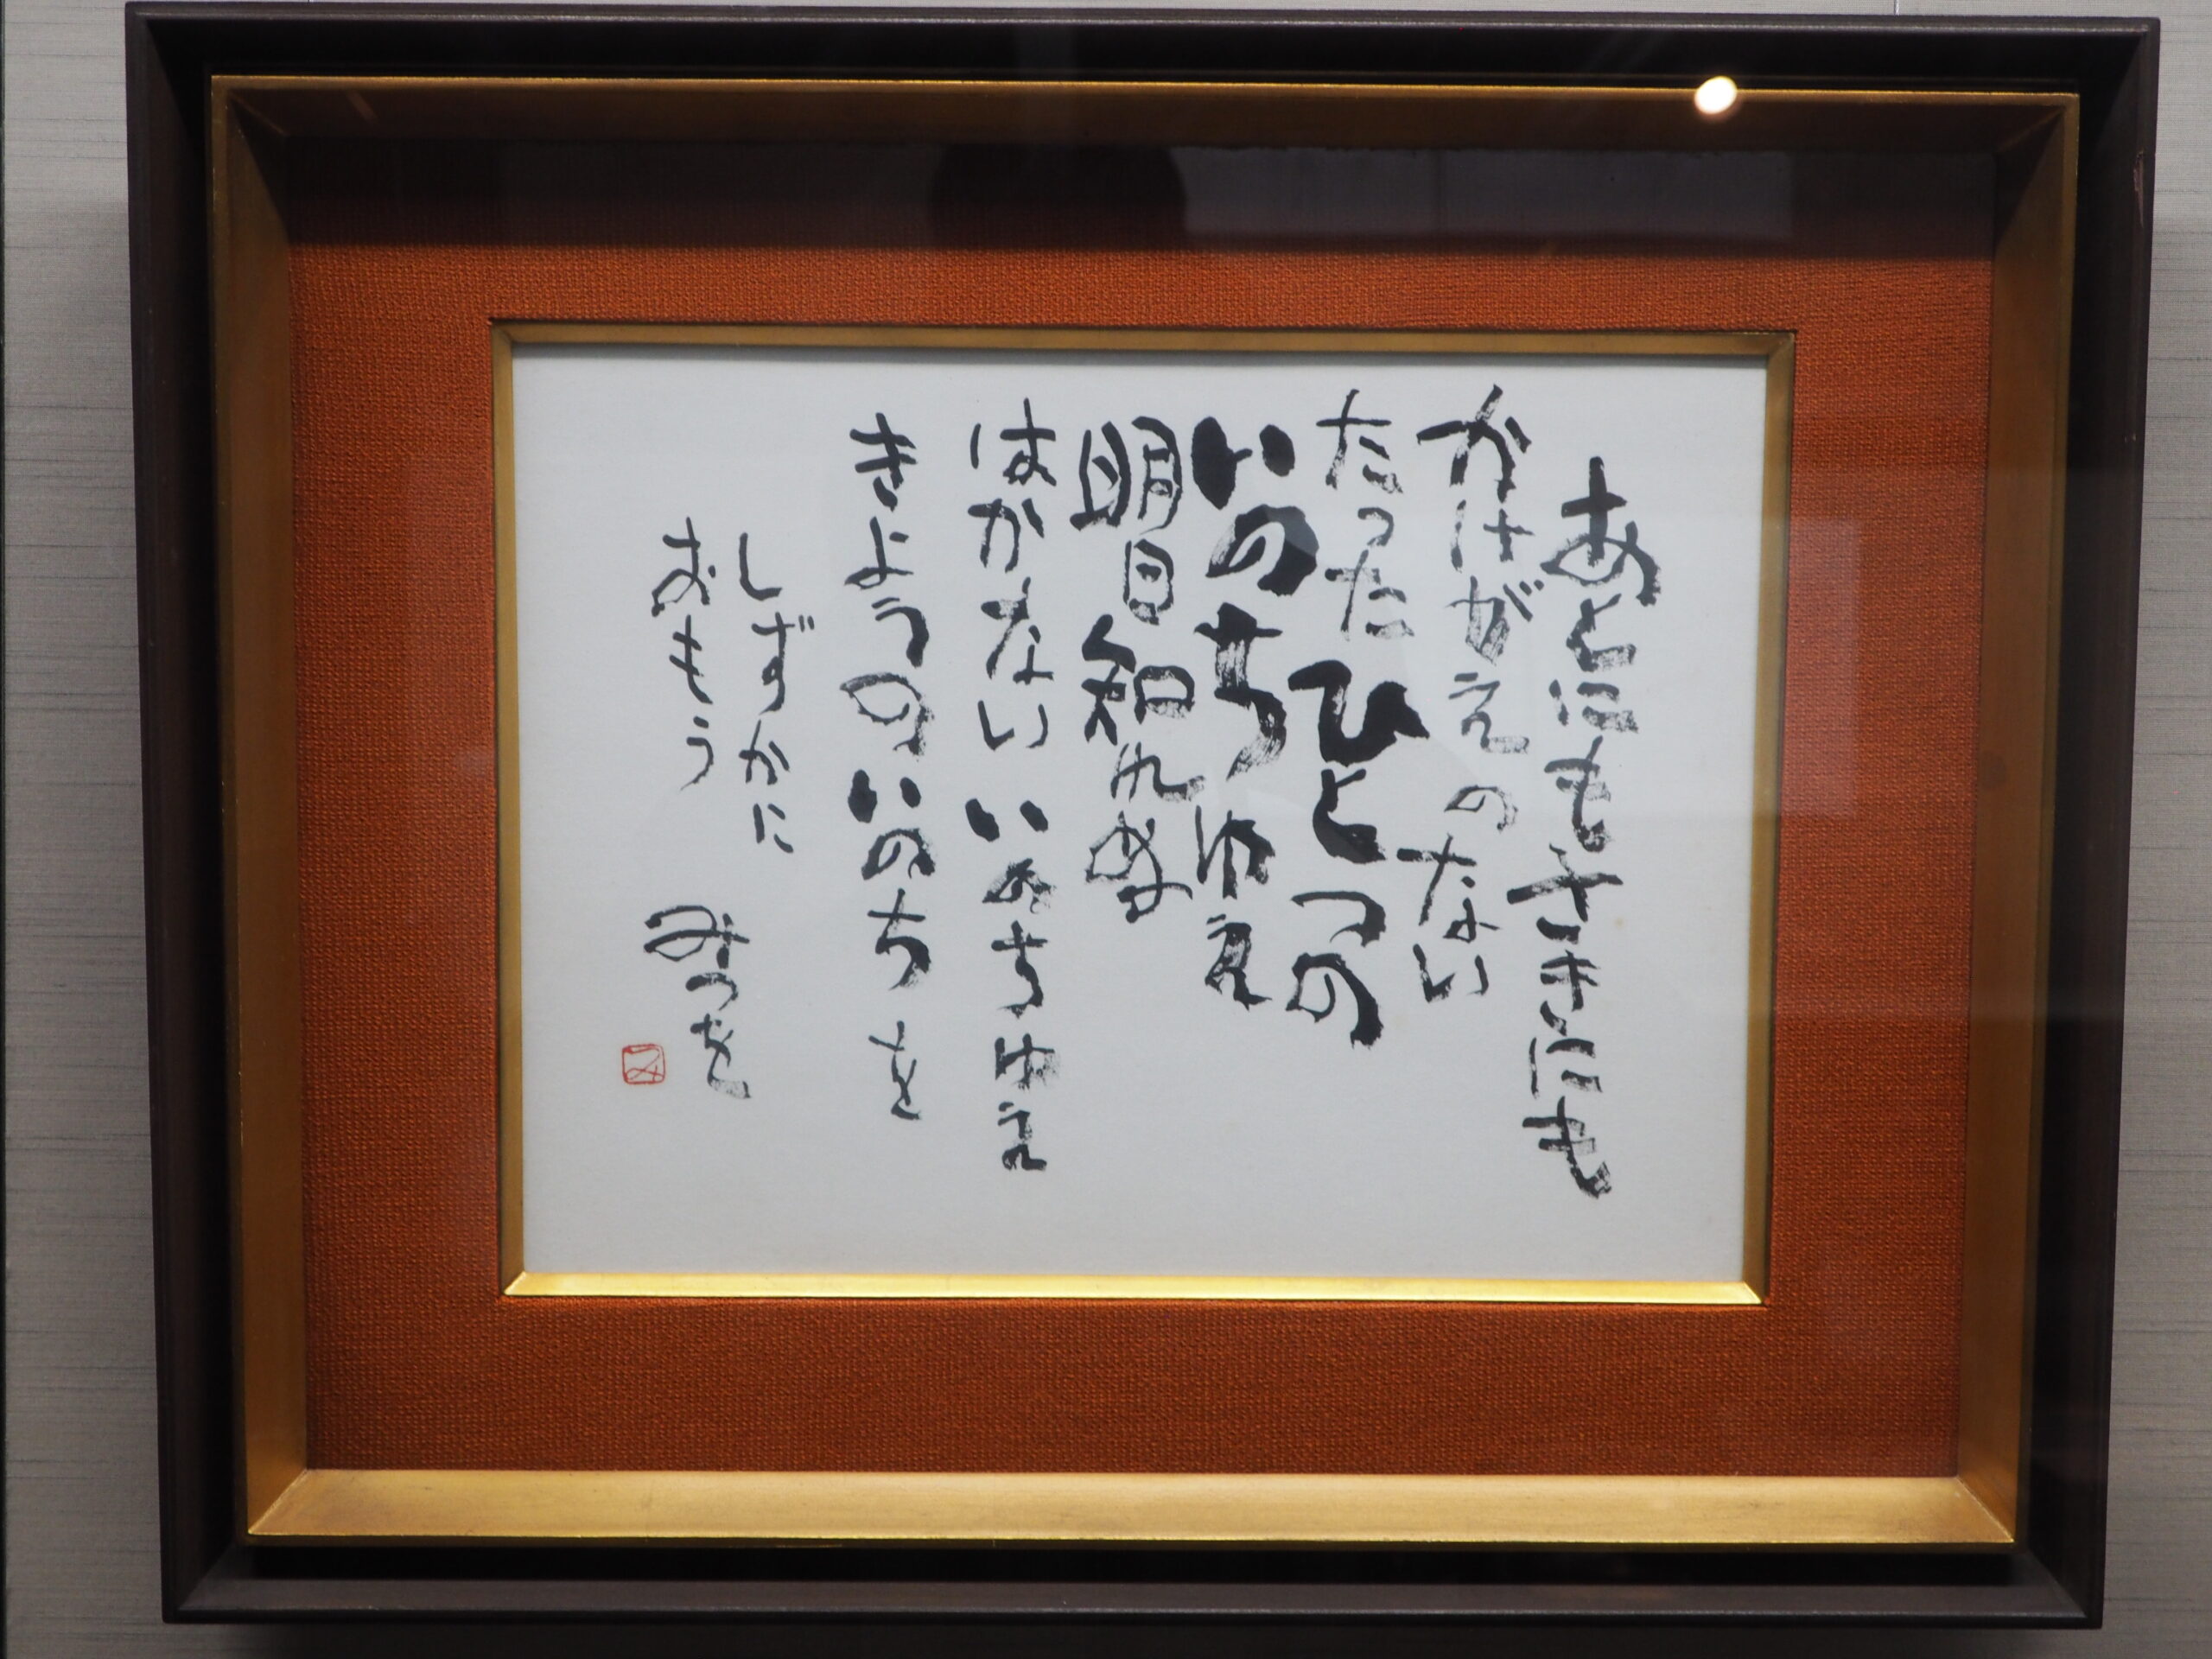 あとにもさきにも
かけがえのない
たったひとつの
いのちゆえ
明日知れぬ
はかないいのちゆえ
きょうのいのちを
しずかに
おもう
みつを
み